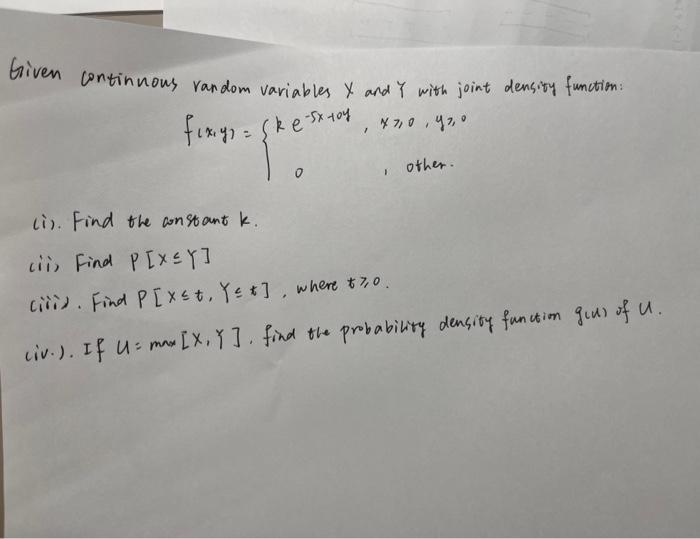 Given continuous random variables X and Y with joint density function:
f(x,y) = { k e^-5x-10y , x ≥ 0 , y ≥ 0
0 , other.
(i). Find the constant k.
(ii) Find P[X ≤ Y]
(iii). Find P[X ≤ t, Y ≤ t], where t ≥ 0.
(iv.). If U = max [X, Y]. find the probability density function g(u) of U.